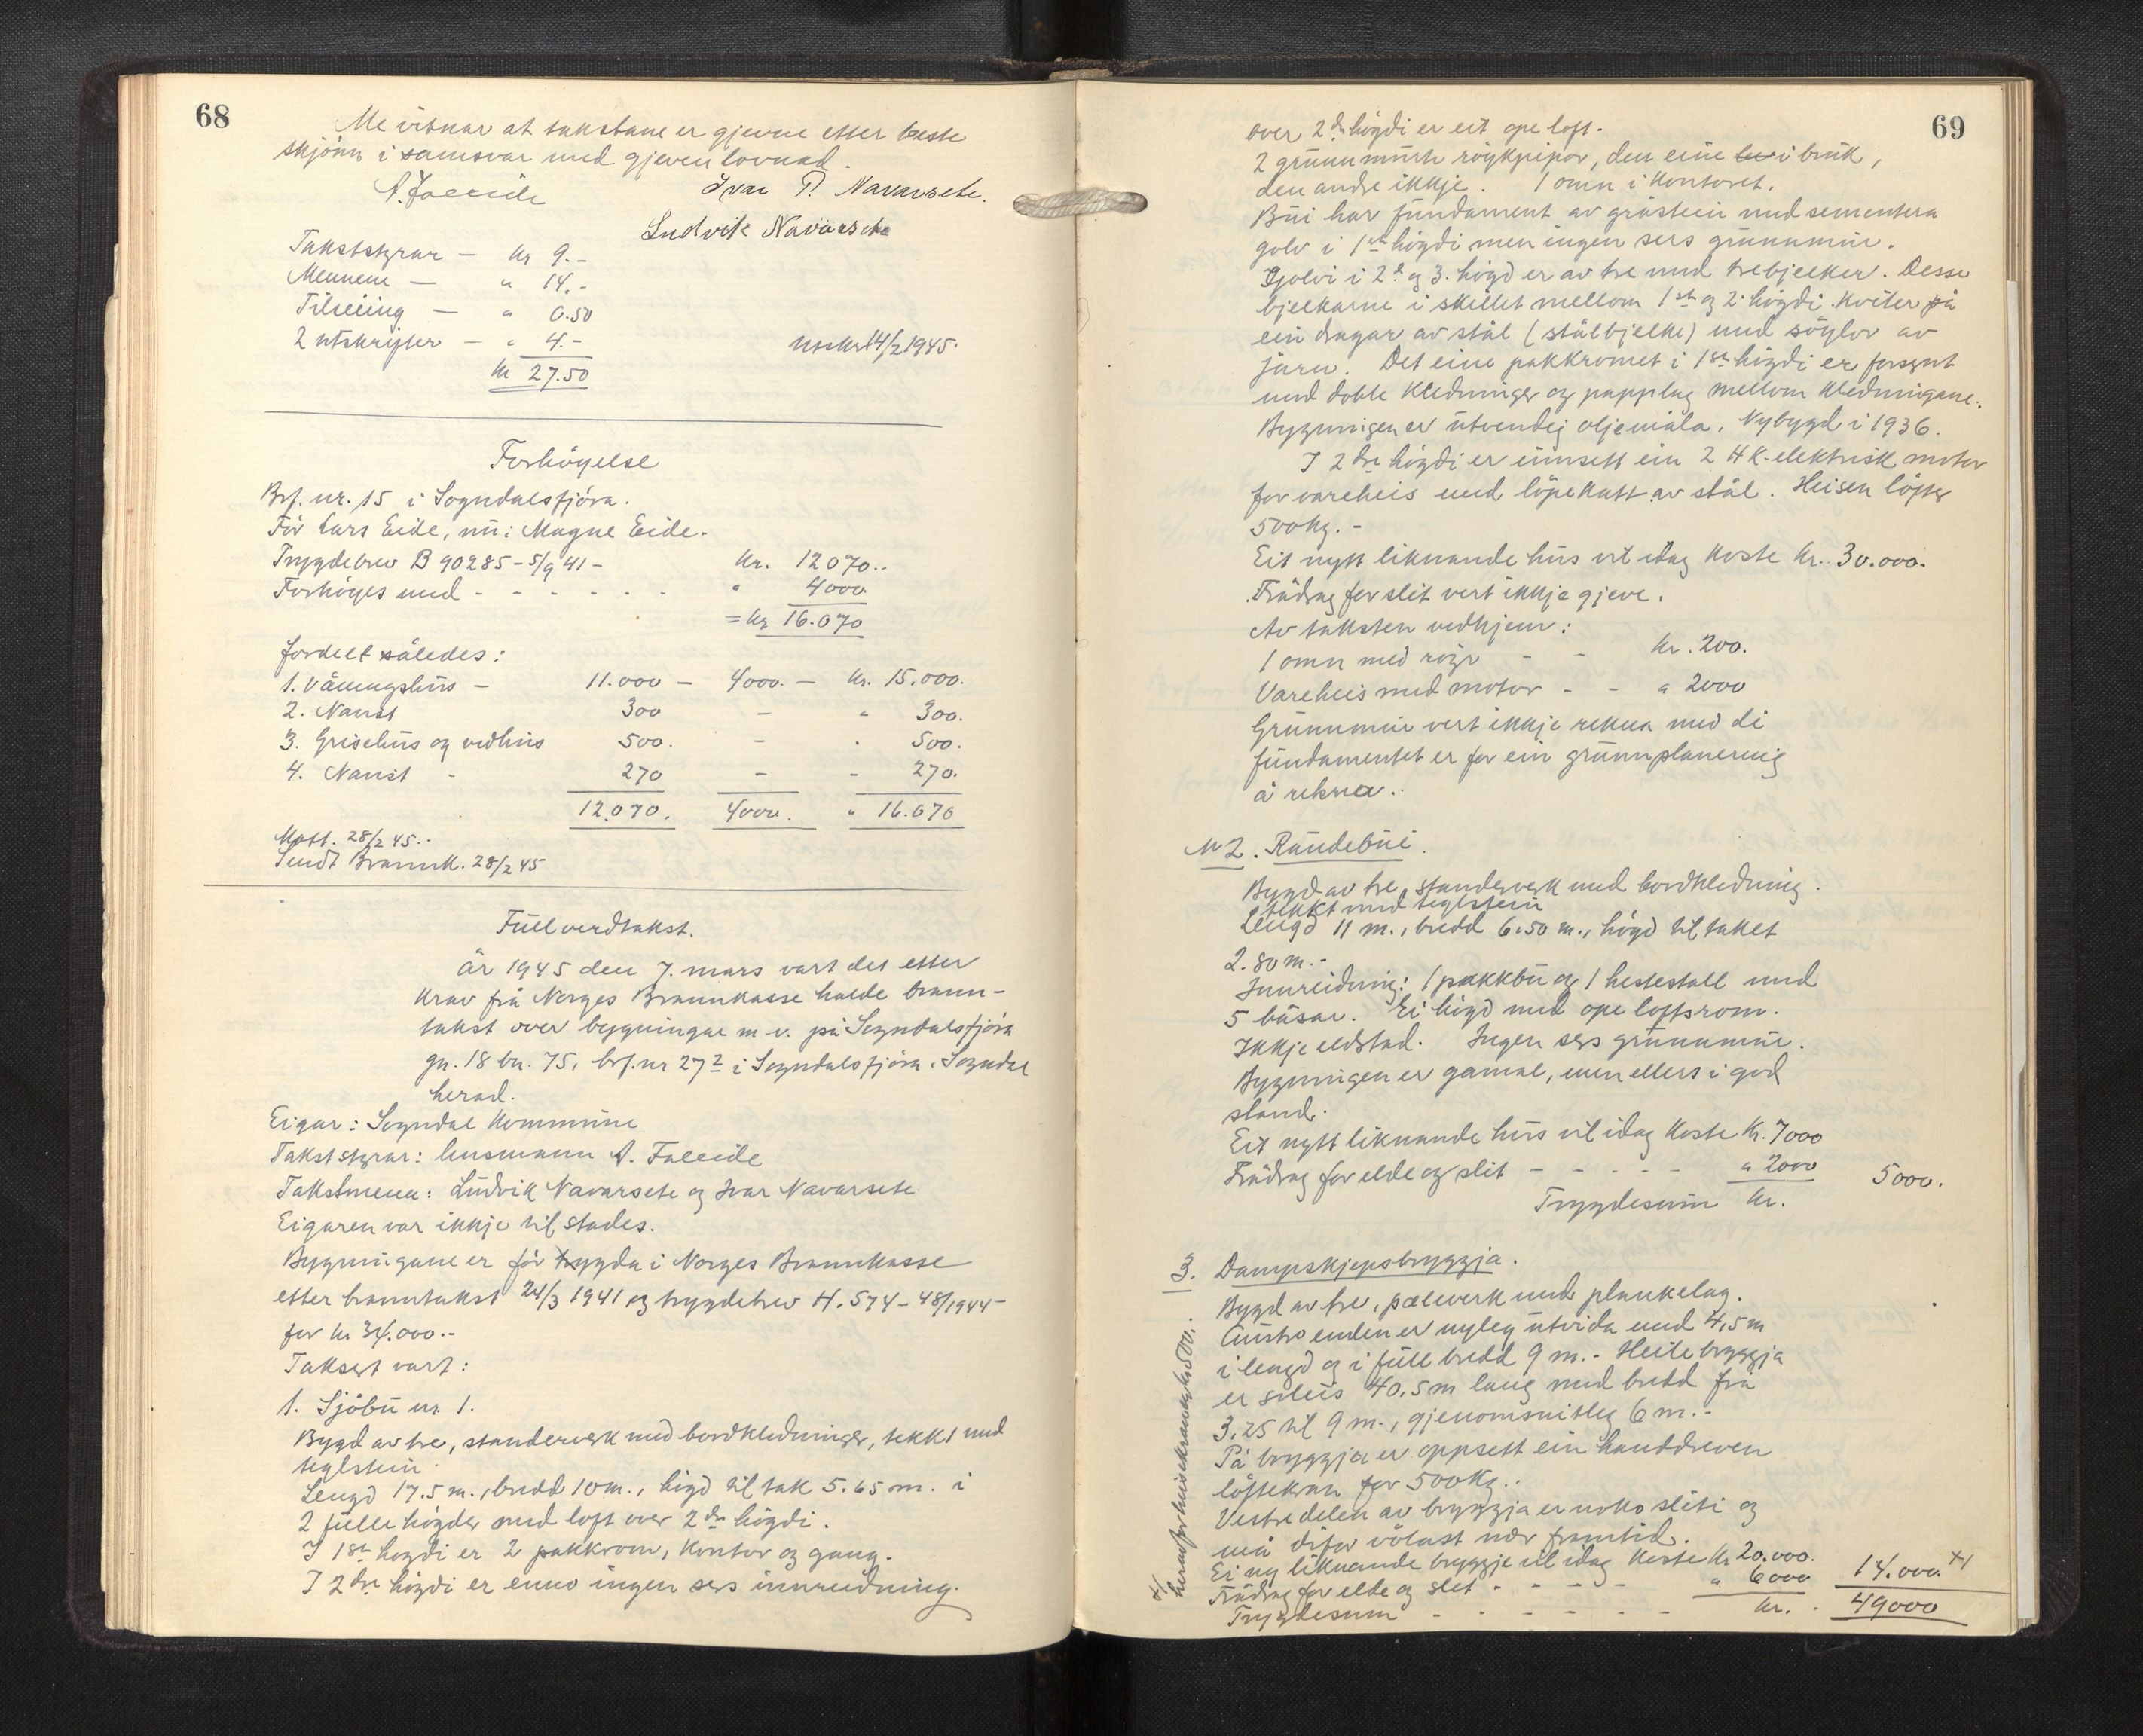 68
Me vitnar at takstane er gjevne etter beste
skjönn i samsvar med gjeven lovnad.
A. Faleide Ivar P. Navarsete.
Ludvik Navarsete
Takststyrar — kr 9.-
Mennene — " 14.-
Tilseiing — " 0.50
2 utskrifter — " 4.-
utskr. 14/2 1945.
kr 27.50
Forhöyelse
Brf. nr. 15 i Sogndalsfjöra.
För Lars Eide, nu: Magne Eide.
Trygdebrev B 90285 - 5/9 41 - kr. 12070..
Forhöyes med - - - - - - " 4000.
= kr 16.070
fordelt således:
1. Våningshus - 11.000 - 4000. - kr. 15.000.
2. Naust 300 - " 300.
3. Grisehus og vedhus 500. - " 500.
4. Naust - 270 - - 270.
12.070. 4000. " 16.070
Mott. 28/2 45..
Sendt Brannk. 28/2 45
Fullverdtakst.
År 1945 den 7. mars vart det etter
krav frå Norges Brannkasse halde brann-
takst over bygningar m.v. på Sogndalsfjöra
gn. 18 bn. 75, brf. nr 27² i Sogndalsfjöra. Sogndal
herad.
Eigar: Sogndal Kommune
Takststyrar: lensmann A. Faleide
Takstmenn: Ludvik Navarsete og Ivar Navarsete
Eigaren var ikkje til stades.
Bygningane er för trygda i Norges Brannkasse
etter branntakst 24/3 1941 og trygdebrev H. 574 - 48/1944 -
for kr 34.000.-
Taksert vart:
1. Sjöbu nr 1.
Bygd av tre, standerverk med bordkledninger, tekkt med
teglstein.
Lengd 17.5 m., bredd 10 m., högd til tak 5.65 m. i
2 fulle högder med loft over 2dre högdi.
I 1ste högdi er 2 pakkrom, kontor og gang.
I 2dre högdi er enno ingen sers innreidning.
69
over 2dre högdi er eit ope loft.
2 grunnmurte röykpipor, den eine i bruk,
den andre ikkje. 1 omn i kontoret.
Bui har fundament av gråstein med sementera
golv i 1ste högdi men ingen sers grunnmur.
Golvi i 2dre og 3. högd er av tre med trebjelker. Desse
bjelkarne i skillet mellom 1ste og 2. högdi kviler på
ein dragar av stål (stålbjelke) med söylor av
jarn. Det eine pakkromet i 1ste högdi er forsynt
med doble kledninger og papplag mellom kledningane.
Bygningen er utvendig oljemåla. Nybygd i 1936.
I 2dre högdi er innsett ein 2 HK. elektrisk motor
for vareheis med löpekatt av stål. Heisen löfter
500 kg. -
Eit nytt liknande hus vil idag koste kr. 30.000.
Frådrag for slit vert ikkje gjeve.
Av taksten vedkjem:
1 omn med röyr - - kr. 200.
Vareheis med motor - - " 2000
Grunnmur vert ikkje rekna med di
fundamentet er for ein grunnplanering
å rekna..
Nr 2. Raudebui.
Bygd av tre, standerverk med bordkledning.
tekkt med teglstein
Lengd 11 m., bredd 6.50 m., högd til taket
2.80 m.-
Innreidning: 1 pakkbu og 1 hestestall med
5 båsar. Ei högd med ope loftsrom.
Ikkje eldstad. Ingen sers grunnmur.
Bygningen er gamal, men ellers i god
stand.
Eit nytt liknande hus vil idag koste kr. 7000
Frådrag for elde og slit - - - - - " 2000
Trygdesum kr. 5000.
3. Dampskipsbryggja.
Bygd av tre, pæleverk med plankelag.
Austre enden er nyleg utvida med 4,5 m
i lengd og i full bredd 9 m.- Heile bryggja
er soleis 40.5 m lang med bredd frå
3.25 til 9 m., gjenomsnitleg 6 m.-
På bryggja er oppsett ein handdreven
löftekran for 500 kg..
Vestre delen av bryggja er noko sliti og
må difor völast nær framtid.
Ei ny liknande bryggje vil idag koste kr 20.000.
Frådrag for elde og slit - - - - - " 6000 14.000 x)
Trygdesum - - - - - - kr. 49000
x) herav for heisekrana kr 500.